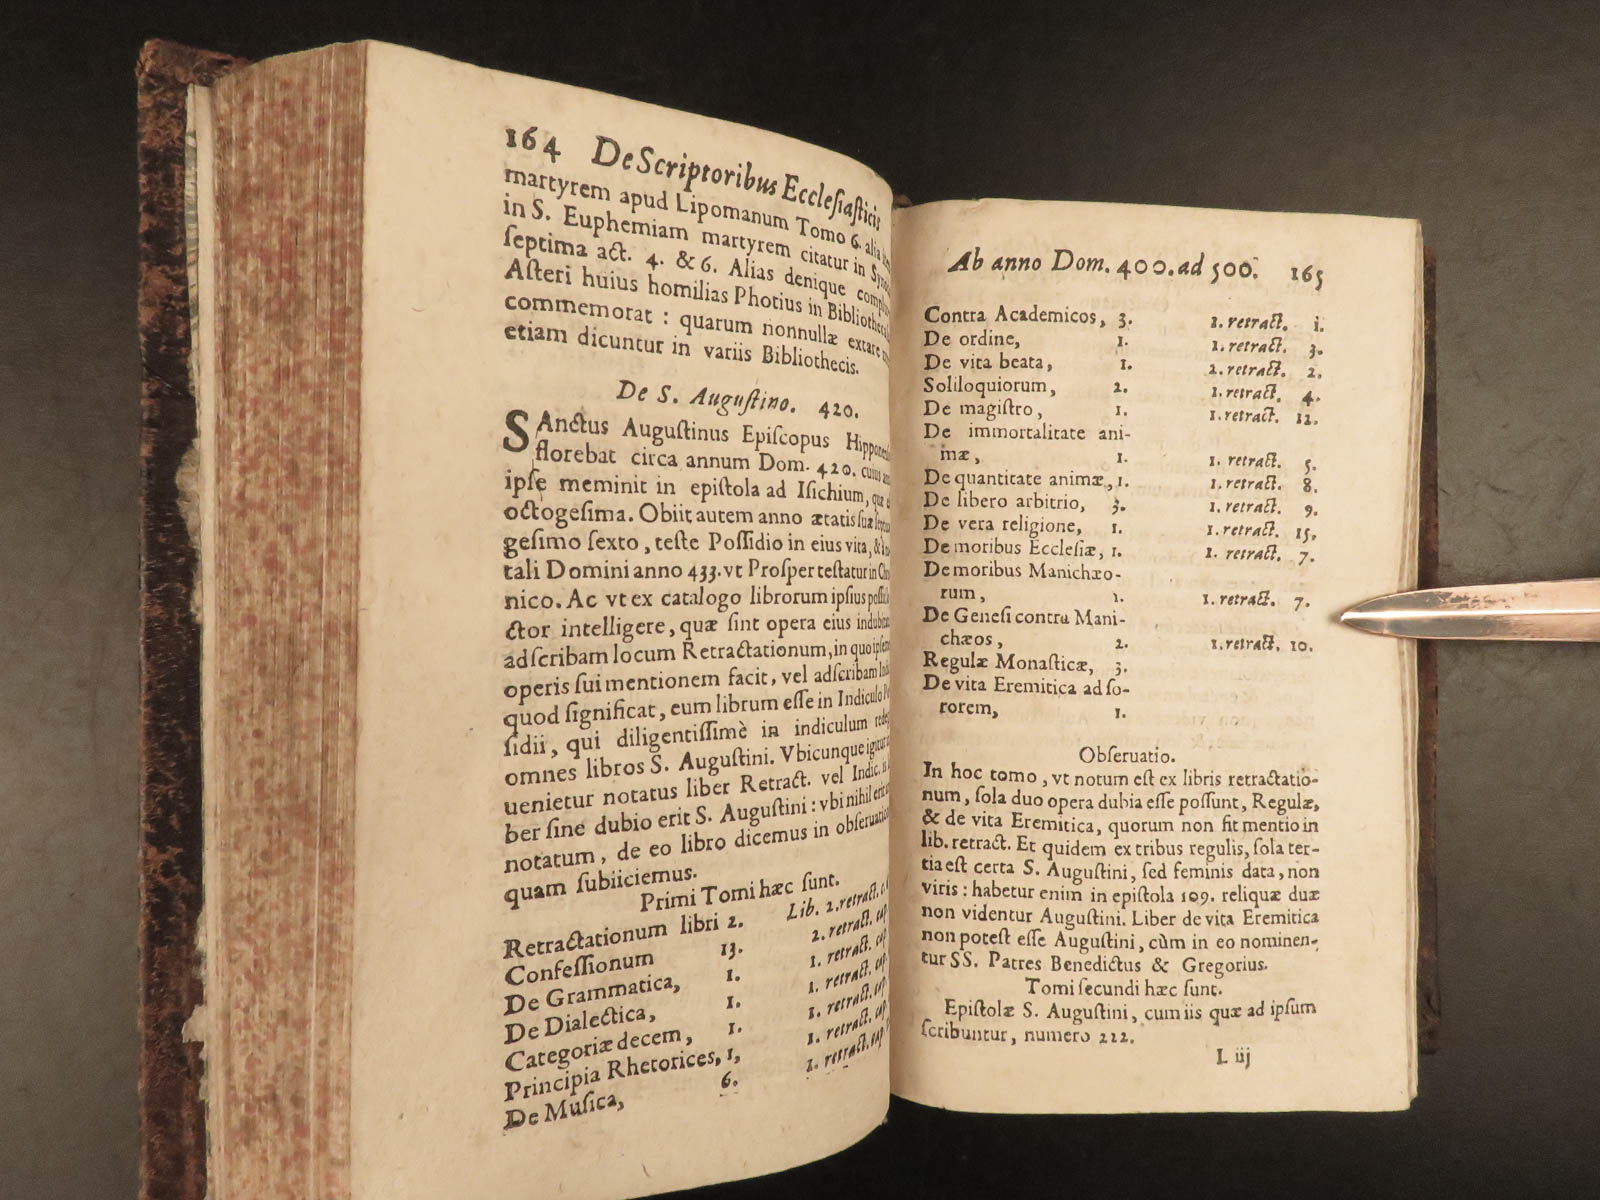 164 De Scriptoribus Ecclesiasticis
martyrem apud Lipomanum Tomo 6. alia
in S. Euphemiam martyrem citatur in
septima act. 4. & 6. Alias denique
Asteri huius homilias Photius in
commemorat : quarum nonnullæ extare
etiam dicuntur in variis Bibliothecis.
De S. Augustino. 420.
SAnctus Augustinus Episcopus
florebat circa annum Dom. 420. cuius
ipse meminit in epistola ad Isichium,
octogesima. Obiit autem anno ætatis suæ
gesimo sexto , teste Possidio in eius vita, &
tali Domini anno 433. vt Prosper testatur in
nico. Ac vt ex catalogo librorum ipsius
ctor intelligere, quæ sint opera eius
adscribam locum Retractationum, in quo
operis sui mentionem facit, vel adscribam
quod significat, eum librum esse in Indiculo
sidii, qui diligentissimè in indiculum
omnes libros S. Augustini. Vbicunque igitur
uenietur notatus liber Retract. vel Indic.
ber sine dubio erit S. Augustini : vbi nihil
notatum, de eo libro dicemus in
quam subiiciemus.
Primi Tomi hæc sunt.
Retractationum libri 2. Lib. 2. retract.
Confessionum 13. 2. retract. cap
De Grammatica, 1. 1. retract. cap.
De Dialectica, 1. 1. retract. cap.
Categoriæ decem, 1. 1. retract. cap
Principia Rhetorices, 1, 1. retract. cap
De Musica, 6. 1. retract. cap
Ab anno Dom. 400. ad 500. 165
Contra Academicos, 3. 1. retract. i.
De ordine, 1. 1. retract. 3.
De vita beata, 1. 2. retract. 2.
Soliloquiorum, 2. 1. retract. 4.
De magistro, 1. 1. retract. 12.
De immortalitate ani-
mæ, 1. 1. retract. 5.
De quantitate animæ, 1. 1. retract. 8.
De libero arbitrio, 3. 1. retract. 9.
De vera religione, 1. 1. retract. 15.
De moribus Ecclesiæ, 1. 1. retract. 7.
De moribus Manichæo-
rum, 1. 1. retract. 7.
De Genesi contra Mani-
chæos, 2. 1. retract. 10.
Regulæ Monasticæ, 3.
De vita Eremitica ad so-
rorem, 1.
Obseruatio.
In hoc tomo, vt notum est ex libris retractatio-
num, sola duo opera dubia esse possunt, Regulæ,
& de vita Eremitica, quorum non fit mentio in
lib. retract. Et quidem ex tribus regulis, sola ter-
tia est certa S. Augustini, sed feminis data, non
viris : habetur enim in epistola 109. reliquæ duæ
non videntur Augustini. Liber de vita Eremitica
non potest esse Augustini, cùm in eo nominen-
tur SS. Patres Benedictus & Gregorius.
Tomi secundi hæc sunt.
Epistolæ S. Augustini, cum iis quæ ad ipsum
scribuntur, numero 222.
L iij